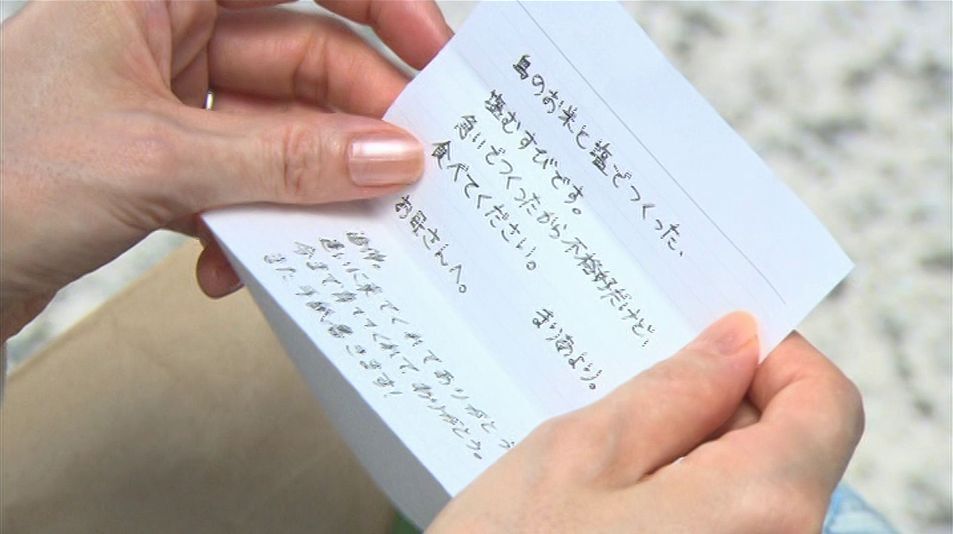 島のお米と塩でつくった、
塩むすびです。
急いでつくったから不格好だけど…
食べてください。
まりあより。
お母さんへ。
迎いに来てくれてありがとう
今まで待っててくれて、ありがとう。
また手紙書きます!